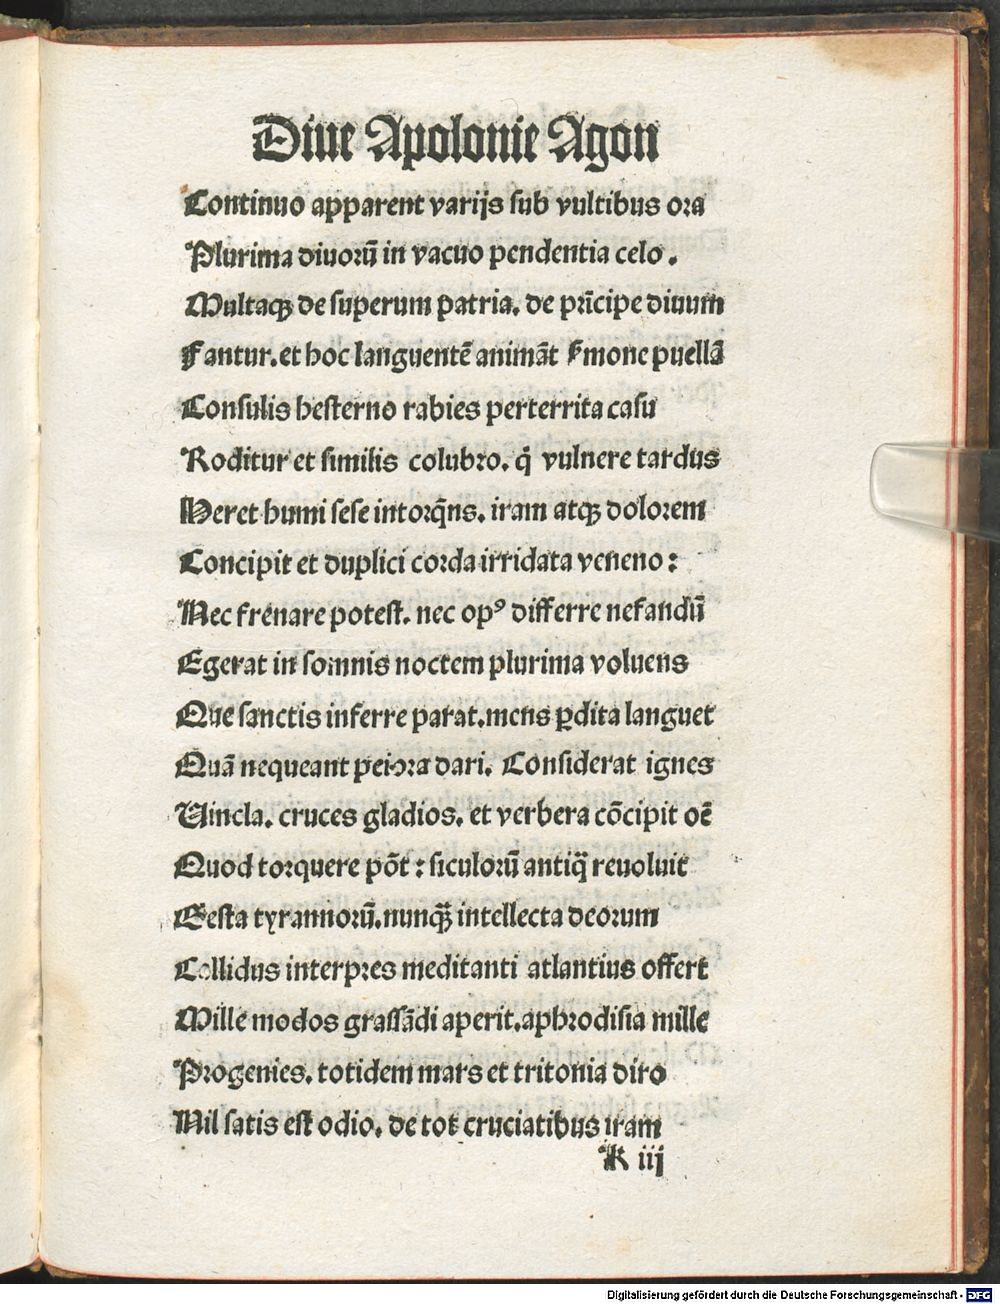 Diue Apolonie Agon
Continuo apparent varijs sub vultibus ora
Plurima diuorū in vacuo pendentia celo .
Multaqꝫ de superum patria. de pn̄cipe diuum
Fantur. et hoc languentē animāt ẜmone puellā
Consulis hesterno rabies perterrita casu
Roditur et similis colubro. q̄ vulnere tardus
Heret humi sese intorq̄ns. iram atqꝫ dolorem
Concipit et duplici corda irridata veneno :
Nec frenare potest. nec opꝰ differre nefandū
Egerat in somnis noctem plurima voluens
Que sanctis inferre parat. mens ꝑdita languet
Quā nequeant peiora dari. Considerat ignes
Uincla. cruces gladios. et verbera cōcipit oē
Quod torquere pōt : siculorū antiq̄ reuoluit
Gesta tyrannorū. nunqꝫ̄ intellecta deorum
Collidus interpres meditanti atlantius offert
Mille modos grassādi aperit. aphrodisia mille
Progenies. totidem mars et tritonia diro
Nil satis est odio. de tot cruciatibus iram
K iij
Digitalisierung gefördert durch die Deutsche Forschungsgemeinschaft - DFG